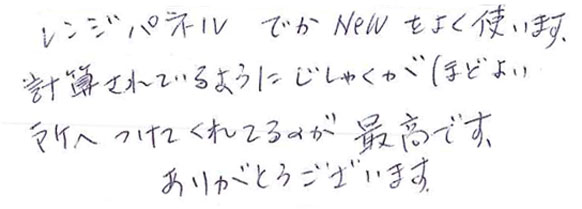 レンジパネル でか New をよく使います。
計算されているようにじしゃくがほどよい
所へつけてくれてるのが最高です。
ありがとうございます。